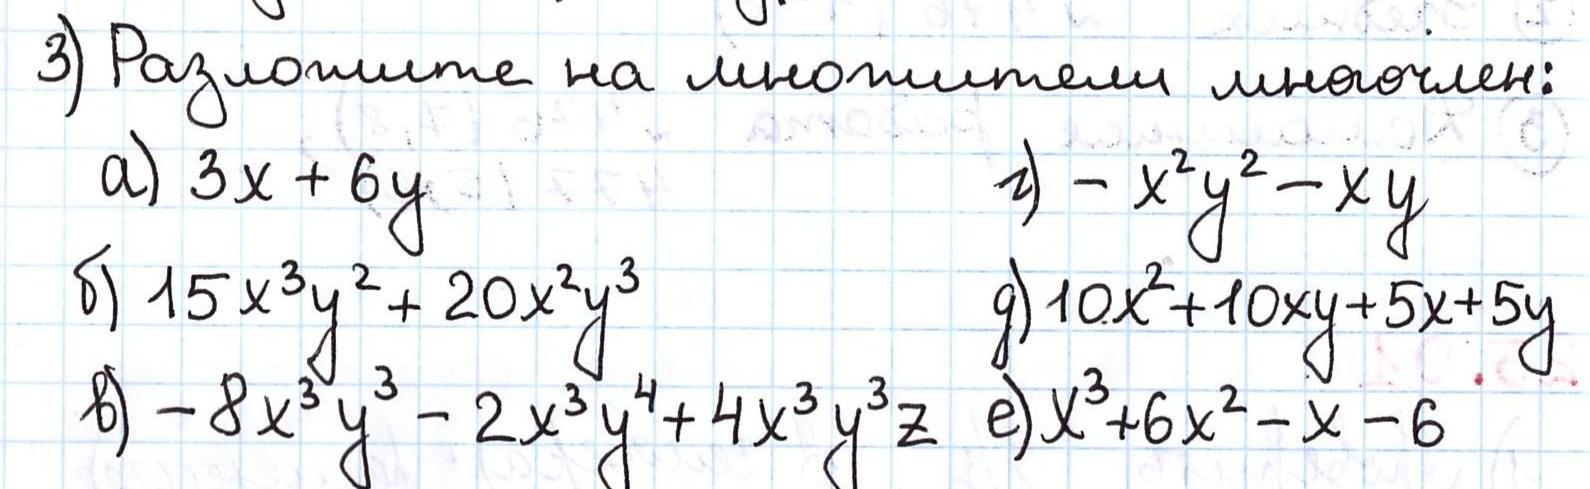 3) Разложите на множители многочлен:
а) 3x + 6y
г) - x²y² - xy
б) 15x³y² + 20x²y³
д) 10x² + 10xy + 5x + 5y
в) - 8x³y³ - 2x³y⁴ + 4x³y³z
е) x³ + 6x² - x - 6